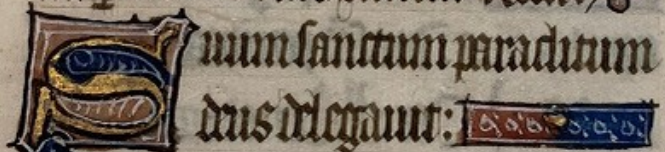 Suum sanctum paraclitum
deus delegauit: